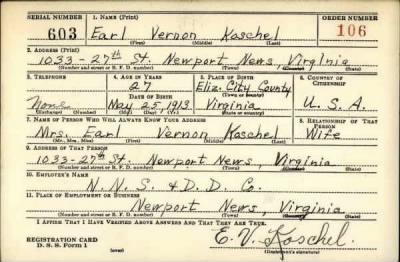 SERIAL NUMBER 1. NAME (Print) ORDER NUMBER
603 Earl Vernon Koschel 106
(First) (Middle) (Last)
2. ADDRESS (Print)
1033-27th St. Newport News, Virginia
(Number and street or R. F. D. number) (Town) (County) (State)
3. TELEPHONE 4. AGE IN YEARS 5. PLACE OF BIRTH 6. COUNTRY OF CITIZENSHIP
27 Eliz. City County
DATE OF BIRTH (Town or county)
None May 25, 1913 Virginia U. S. A.
(Exchange) (Number) (Mo.) (Day) (Yr.) (State or country)
7. NAME OF PERSON WHO WILL ALWAYS KNOW YOUR ADDRESS 8. RELATIONSHIP OF THAT PERSON
Mrs. Earl Vernon Koschel Wife
(Mr., Mrs., Miss) (First) (Middle) (Last)
9. ADDRESS OF THAT PERSON
1033-27th St. Newport News, Virginia
(Number and street or R. F. D. number) (Town) (County) (State)
10. EMPLOYER'S NAME
N. N. S. & D. D. Co.
11. PLACE OF EMPLOYMENT OR BUSINESS
Newport News, Virginia
(Number and street or R. F. D. number) (Town) (County) (State)
I AFFIRM THAT I HAVE VERIFIED ABOVE ANSWERS AND THAT THEY ARE TRUE.
REGISTRATION CARD
D. S. S. Form 1 (over) E. V. Koschel.
(Registrant's signature)